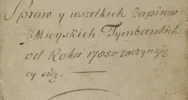 Spraw y wszelkich Zapisow
Mieyskich Tymbarskich
od Roku 1785 zaczynaią
cy się.